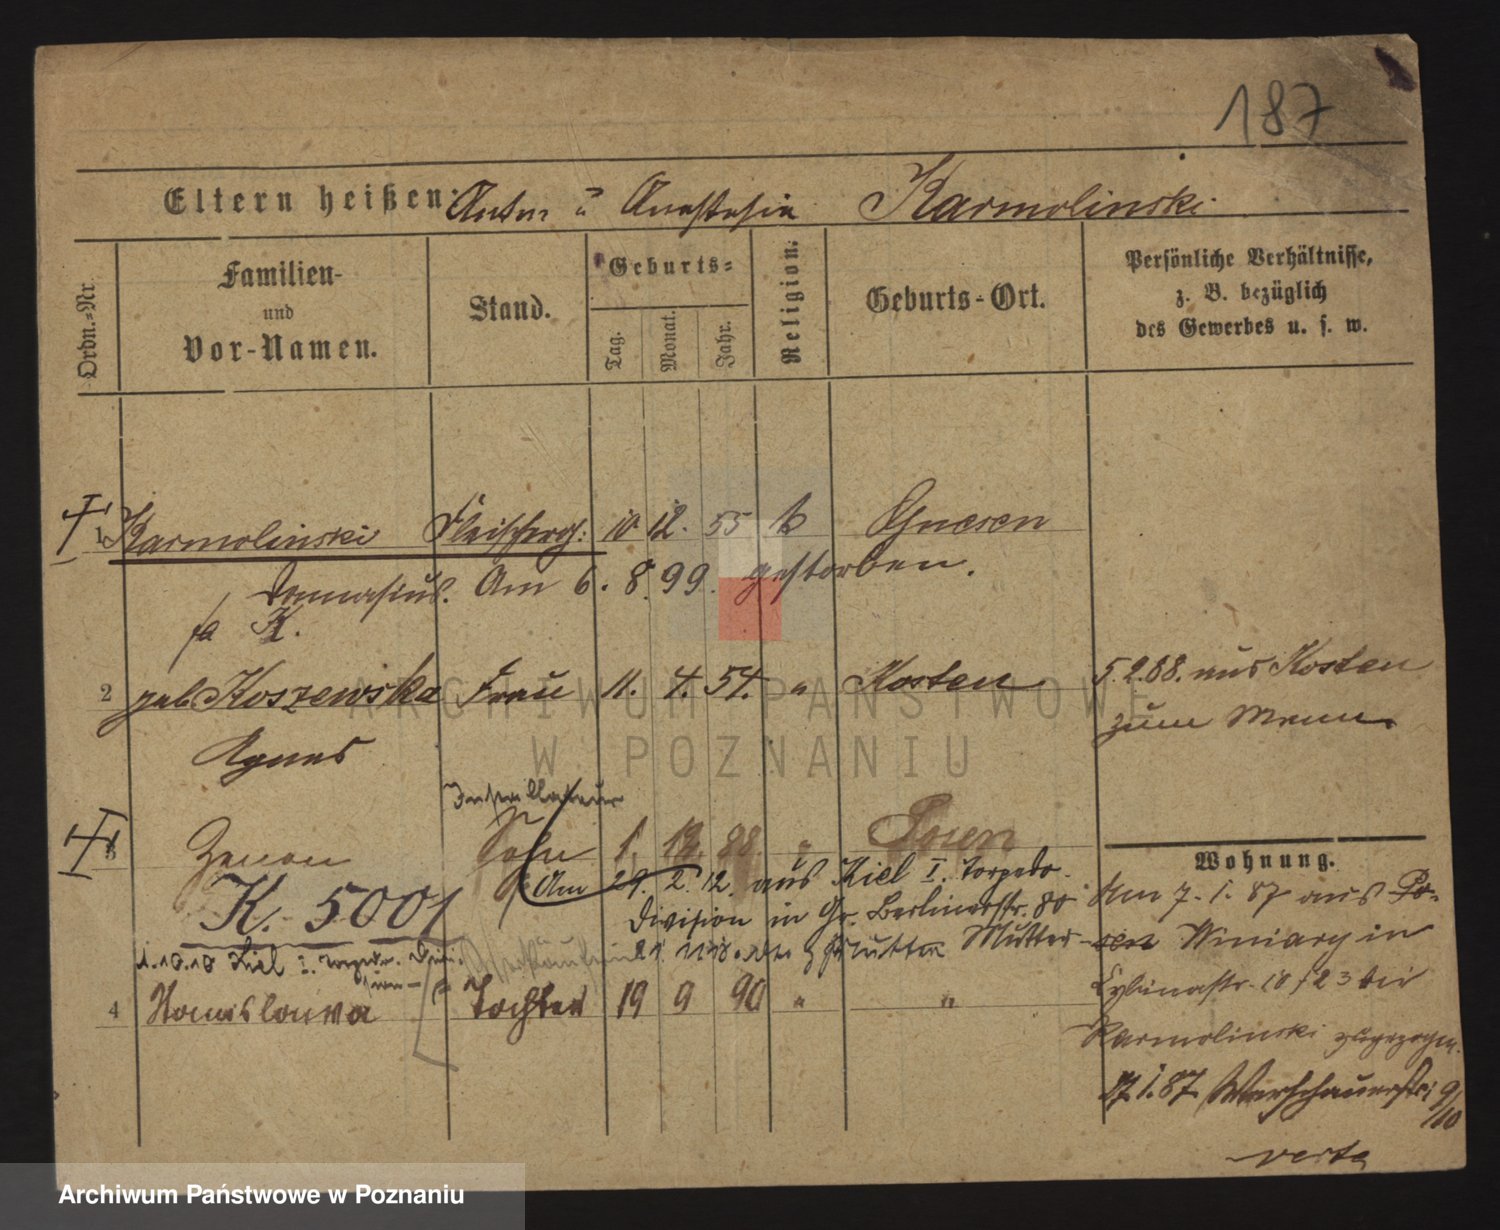 187
Eltern heißen: Anton u Anastasia Karmolinski
Ordn.-Nr.
Familien-
und
Vor-Namen.
Stand.
Geburts-
Tag.
Monat.
Jahr.
Religion.
Geburts-Ort.
Persönliche Verhältnisse,
z. B. bezüglich
des Gewerbes u. s. w.
1 Karmolinski Fleischerg: 10 12. 55 k Gnesen
Am 6. 8. 99. gestorben.
K.
2 geb Koszewska Frau 11. 4. 54. " Kosten 5.2.88. aus Kosten
zum Mann.
Agnes
Installateur
3 Zenon Sohn 1. 12. 88 " Posen
Am 29. 2. 12. aus Kiel I. Torpedo-
K. 5001 Division in Gr. Berlinerstr. 80
1.10.10 Kiel I. Torpedo. Divi-
Mutter
4 Stanislawa Tochter 19 9 90 " "
Wohnung.
Am 7. 1. 87 aus Po-
sen Winiary in
10/23 bei
Karmolinski zugezogen.
17.1.87 Warschauerstr 9/10
verte
ARCHIWUM PAŃSTWOWE
W POZNANIU
Archiwum Państwowe w Poznaniu